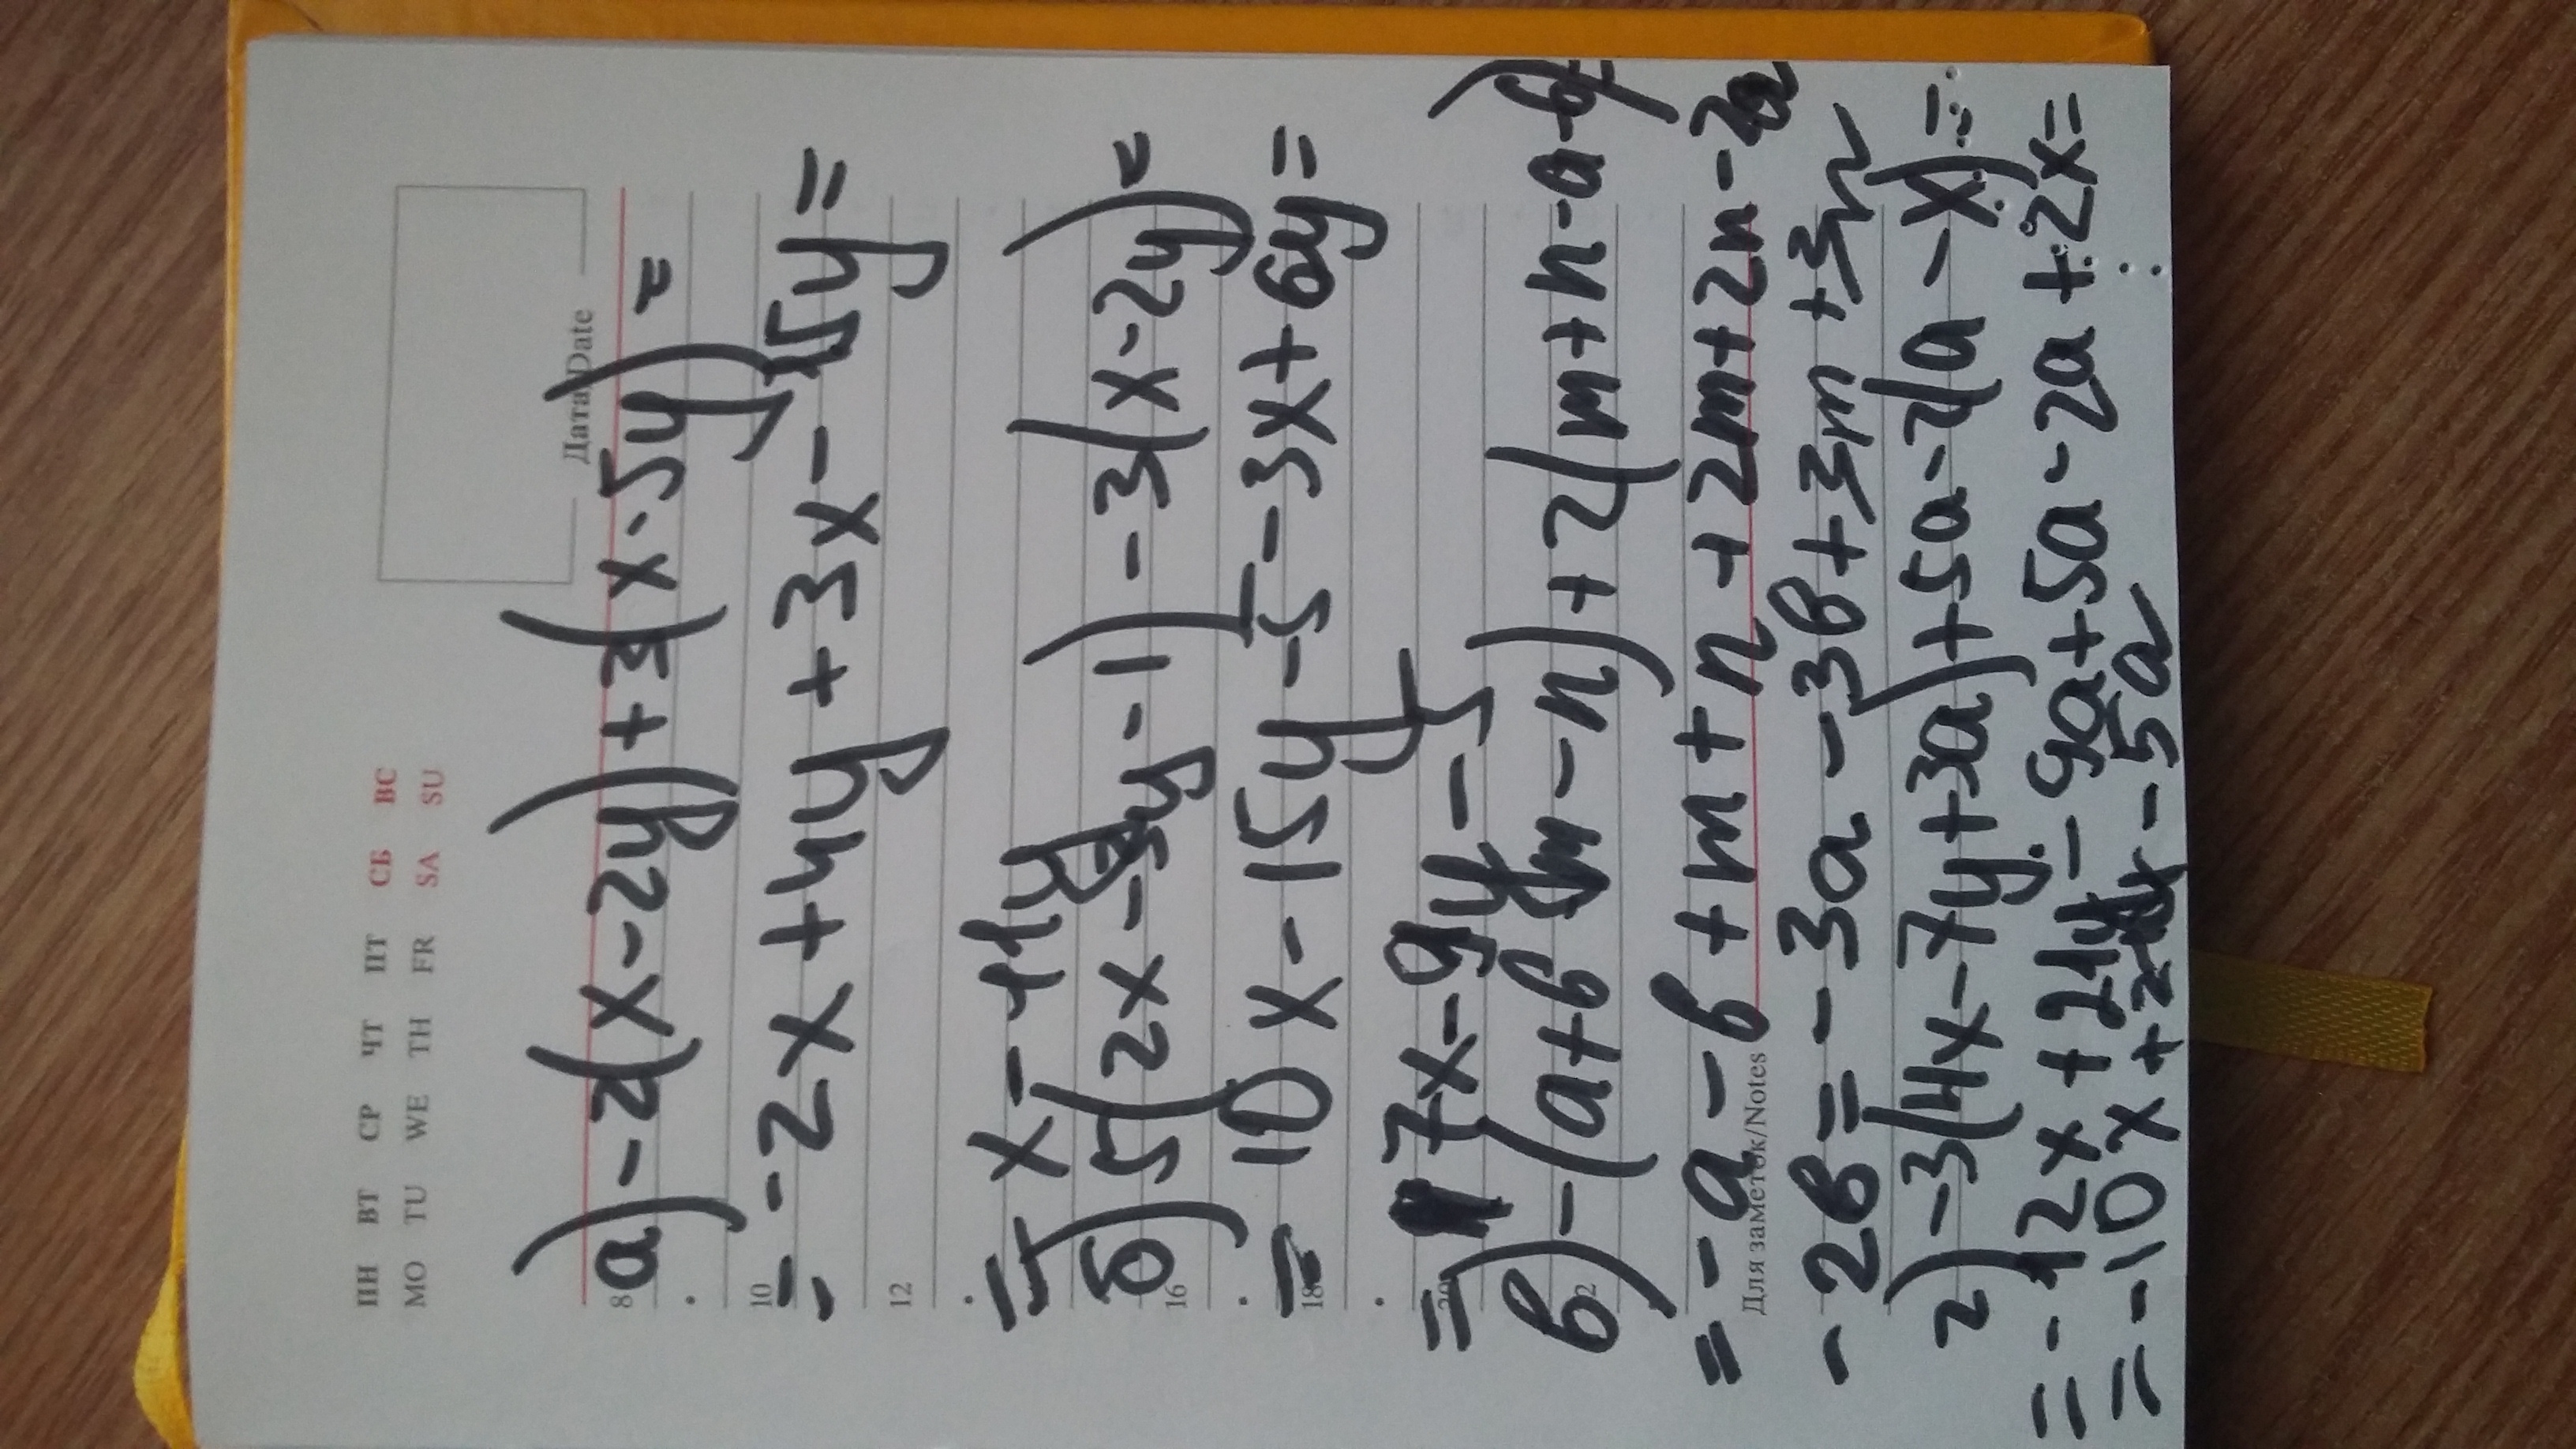 ПН ВТ СР ЧТ ПТ СБ ВС
MO TU WE TH FR SA SU
Дата/Date
8
10
12
16
18
20
Для заметок/Notes
а) -2(x-2y)+3(x-5y)=
= -2x+4y+3x-15y=
= x-11y
б) 5(2x-3y-1)-3(x-2y)=
= 10x-15y-5-3x+6y=
= 7x-9y-5
в) -(a+b-m-n)+2(m+n-a-b)
= -a-b+m+n+2m+2n-2a
-2b= -3a-3b+3m+3n
г) -3(4x-7y+3a)+5a-2(a-x)=
= -12x+21y-9a+5a-2a+2x=
= -10x+21y-5a